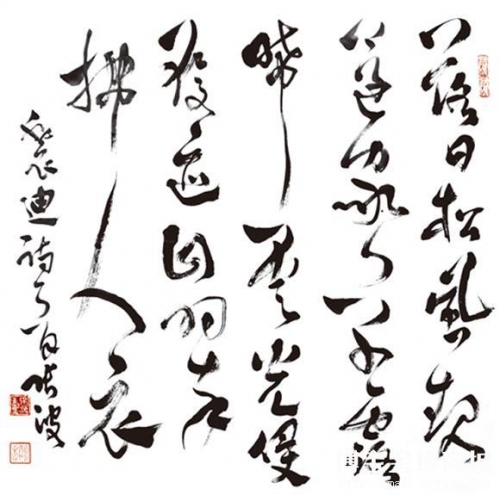 落日松風起
還家草露
晞雲光侵
履迹山翠
拂人衣
裴迪詩 波